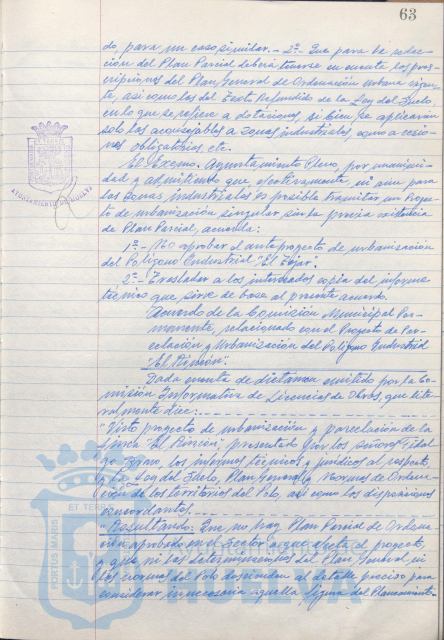 63
do, para un caso similar.- 2º- Que para la redac-
ción del Plan Parcial deberá tenerse en cuenta las pres-
cripciones del Plan General de Ordenación urbana vigen-
te, así como las del Texto Refundido de la Ley del Suelo
en lo que se refiere a dotaciones, si bien se aplicarán
solo las aconsejables a zonas industriales, como a cesio-
nes obligatorias, etc.
El Excmo. Ayuntamiento Pleno, por unanimi-
dad y admitiendo que efectivamente, ni aun para
las zonas industriales es posible tramitar un Proyec-
to de urbanización singular sin la previa existencia
de Plan Parcial, acuerda:
AYUNTAMIENTO DE HUELVA
1º.- No aprobar el anteproyecto de urbanización
del Polígono Industrial "El Tejar".
2º- Trasladar a los interesados copia del informe
técnico que sirve de base al presente acuerdo.
Acuerdo de la Comisión Municipal Per-
manente, relacionado con el Proyecto de Par-
celación y Urbanización del Polígono Industrial
"El Rincón".
Dada cuenta de dictamen emitido por la Co-
misión Informativa de Licencias de Obras, que lite-
ralmente dice:
"Visto proyecto de urbanización y parcelación de la
finca "El Rincón", presentado por los señores
los informes técnicos y jurídicos al respecto,
y la Ley del Suelo, Plan General y Normas de Ordena-
ción de los territorios del Polo, así como las disposiciones
concordantes.
"Resultando: Que no hay Plan Parcial de Ordena-
ción aprobado en el Sector a que afecta el proyecto
y que ni las determinaciones del Plan General, ni
las normas del Polo descienden al detalle preciso para
considerar innecesaria aquella figura del Planeamiento-
PORTUS MARIS ET TERRAE
HUELVA